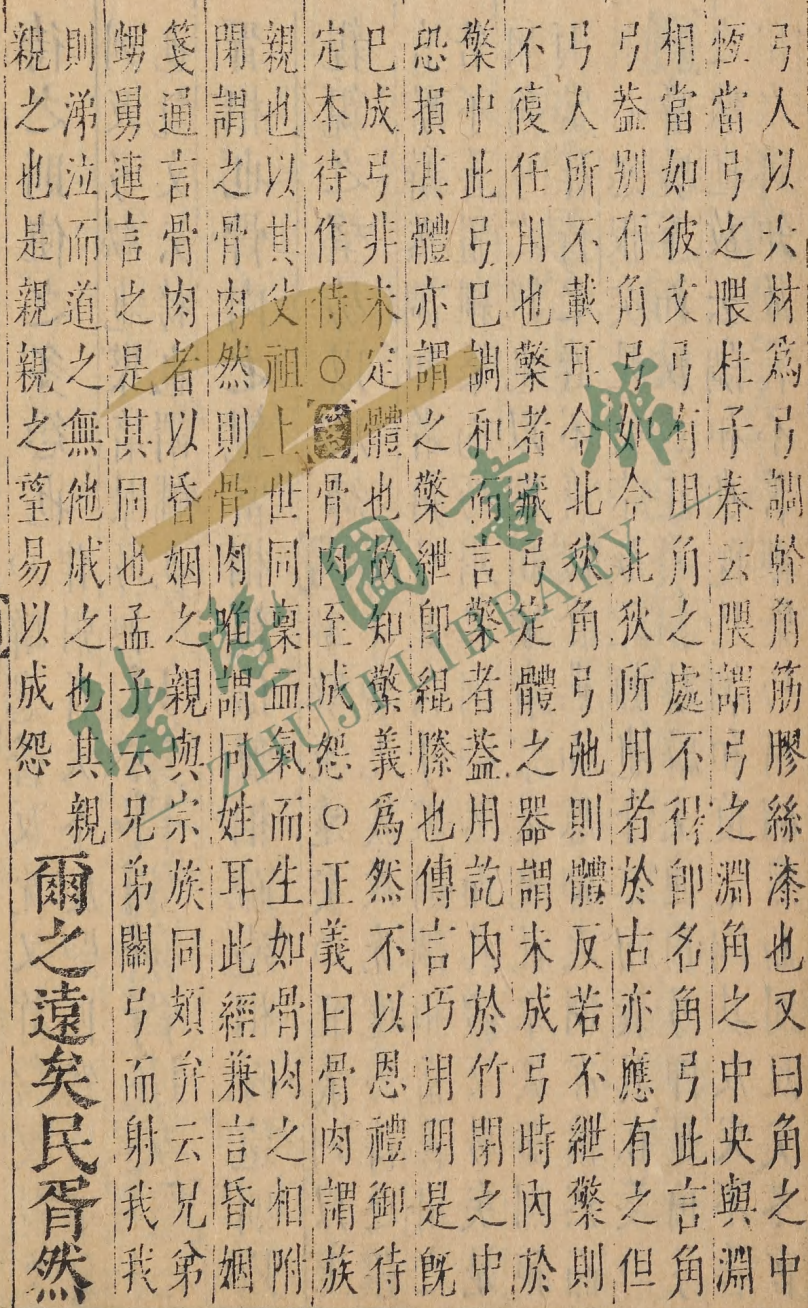 弓人以六材爲弓調幹角筋膠絲漆也又曰角之中
恆當弓之隈杜子春云隈謂弓之淵角之中央與淵
相當如彼文弓有用角之處不得卽名角弓此言角
弓葢別有角弓如今北狄所用者於古亦應有之但
弓人所不載耳今北狄角弓弛則體反若不紲檠則
不復任用也檠者藏弓定體之器謂未成弓時內於
檠中此弓巳調和而言檠者葢用訖內於竹閉之中
恐損其體亦謂之檠紲卽緄縢也傳言巧用明是旣
巳成弓非未定體也故知檠義爲然不以恩禮御待
定本待作侍○箋骨肉至成怨○正義曰骨肉謂族
親也以其父祖上世同稟血氣而生如骨肉之相附
閉謂之骨肉然則骨肉唯謂同姓耳此經兼言昏姻
箋通言骨肉者以昏姻之親與宗族同頍弁云兄弟
甥舅連言之是其同也孟子云兄弟關弓而射我我
則涕泣而道之無他戚之也其親
親之也是親親之望易以成怨
爾之遠矣民胥然
諸暨圖書館
ZHUJI LIBRARY